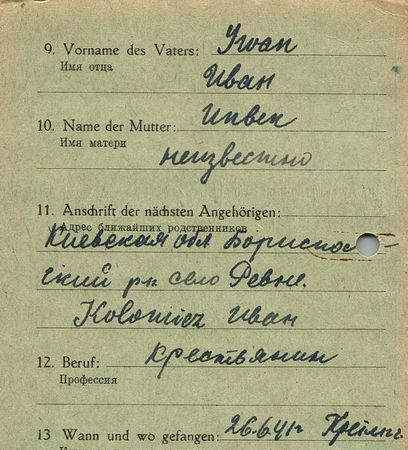 9. Vorname des Vaters: Iwan
Имя отца
Иван
10. Name der Mutter:
Имя матери
неизвестно
11. Anschrift der nächsten Angehörigen:
Адрес ближайших родственников.
Киевская обл Бориспо
ский рн село Ревне.
Kolomiez Иван
12. Beruf: крестьянин
Профессия
13 Wann und wo gefangen: 26.6.41г